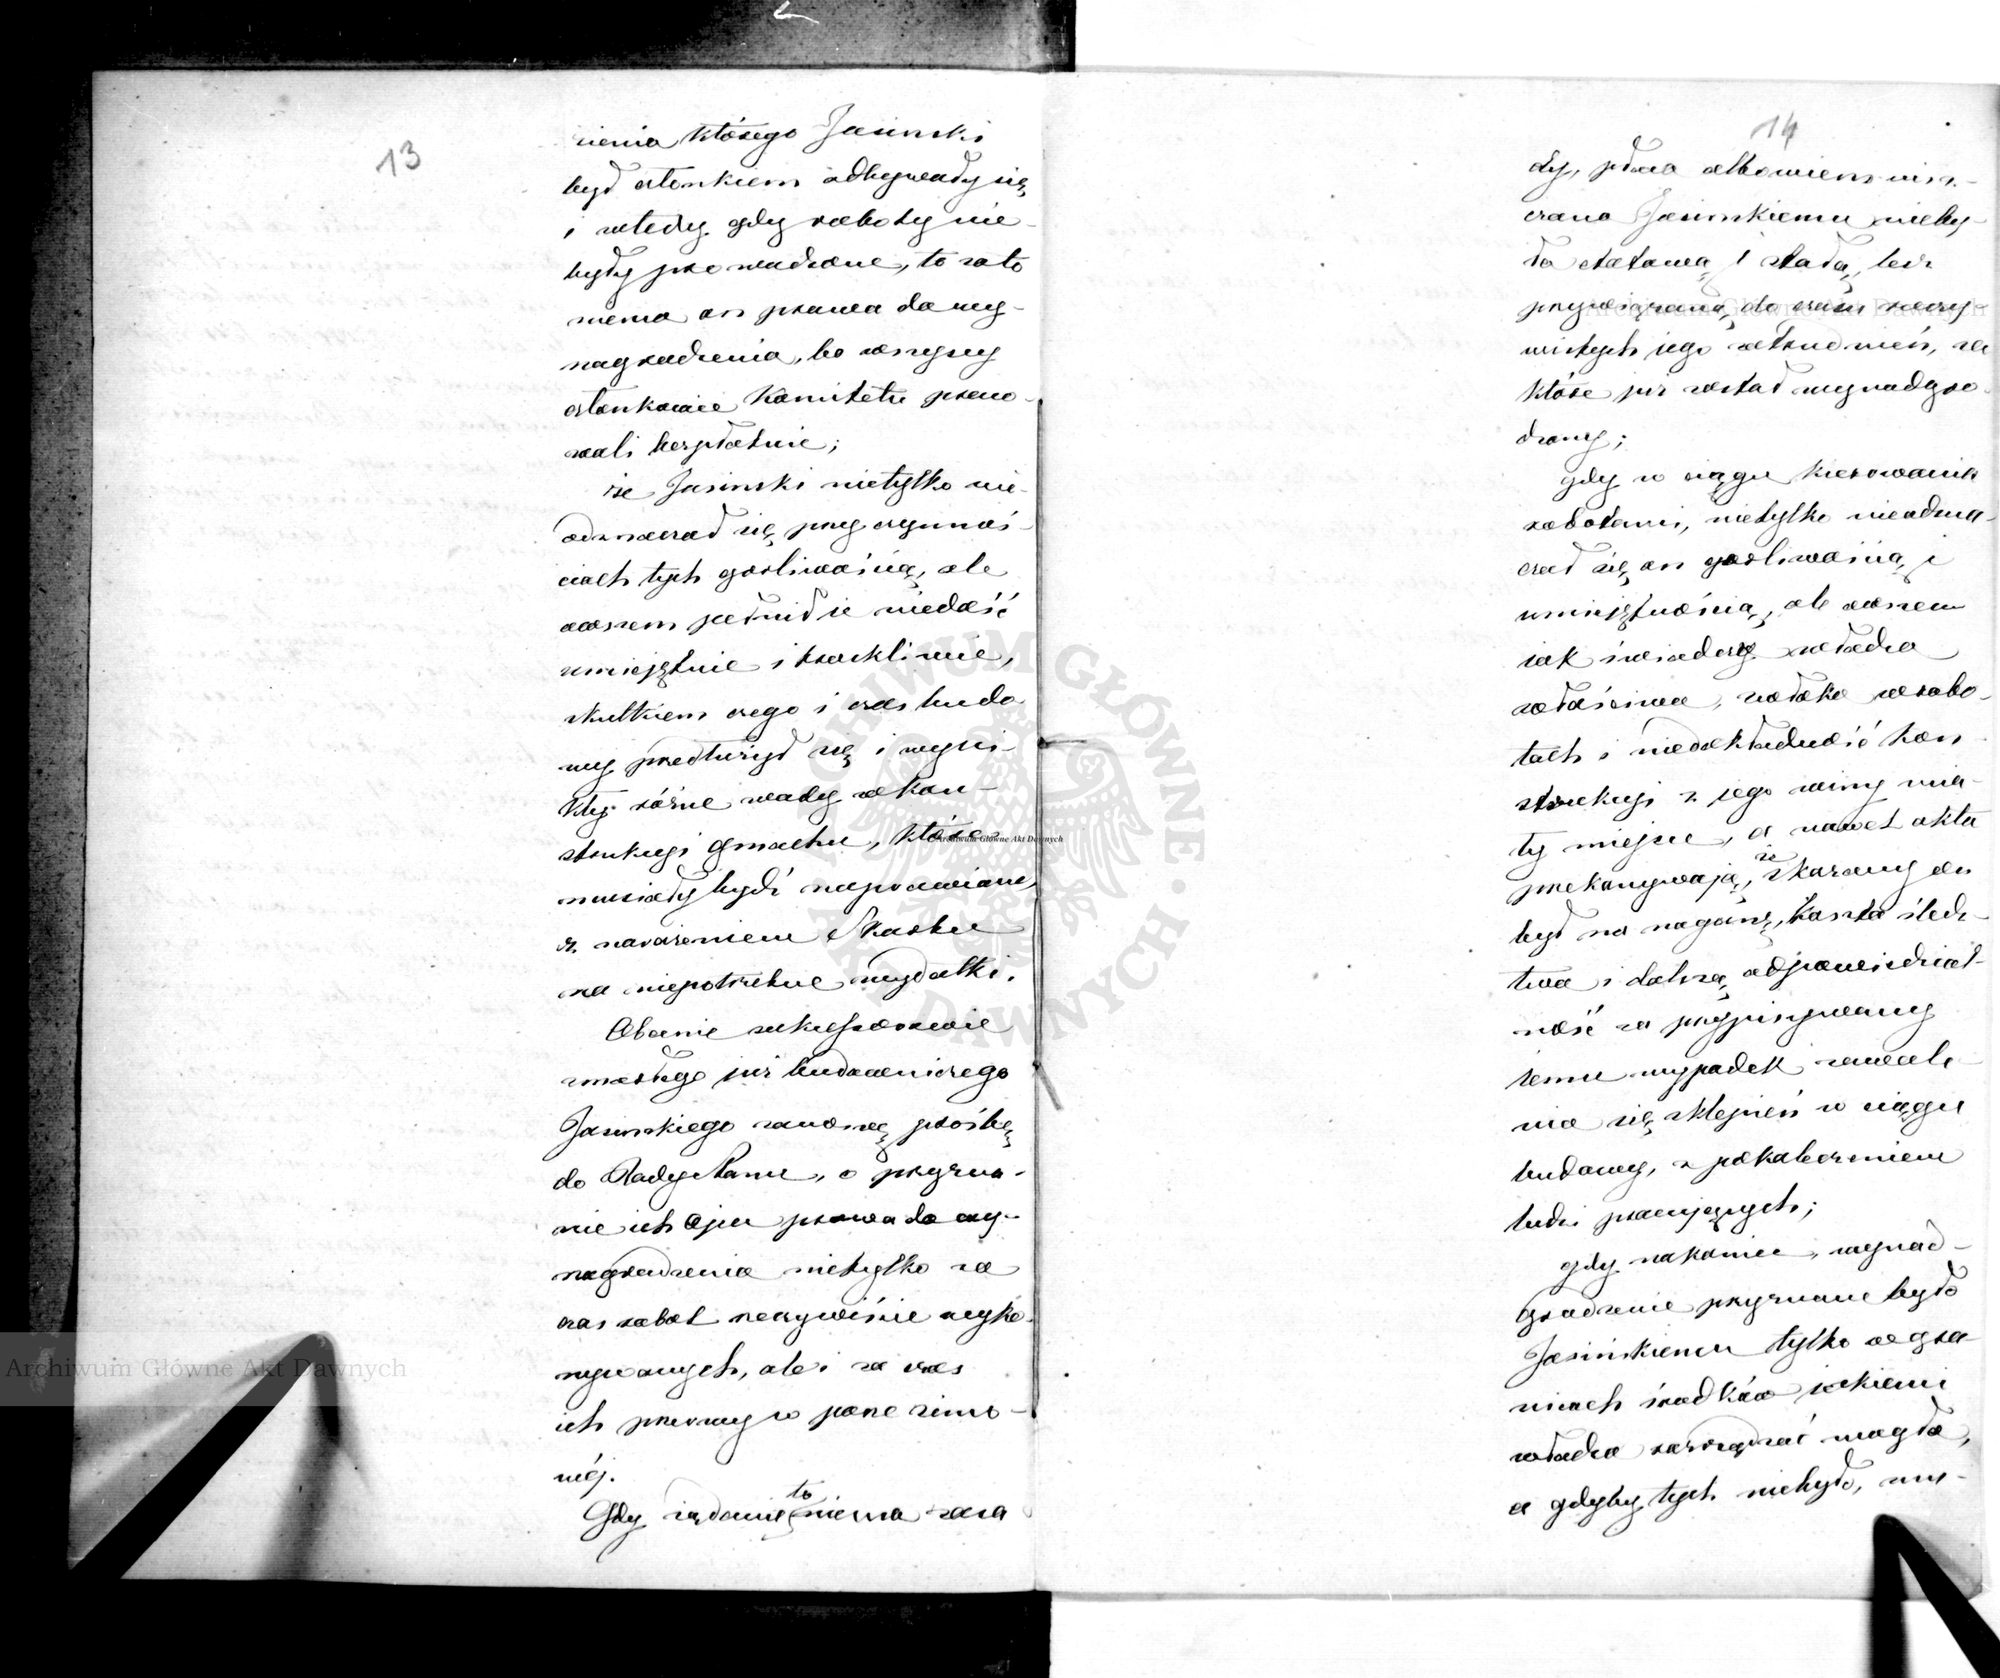 13
nienia którego Jasinski
był członkiem odbywały się,
i wtedy gdy roboty nie
były prowadzone, to za to
niema on prawa do wy-
nagrodzenia, bo wszyscy
członkowie Komitetu praco-
wali bezpłatnie;
że Jasinski nietylko nie
odznaczał się przy czynnoś-
ciach tych gorliwością, ale
owszem pełnił je niedość
umiejętnie i troskliwie,
skutkiem czego i czas budo
wy przedłużył się i wyni-
kły różne wady w kon-
strukcyi gmachu, które
musiały bydź naprawiane,
z narażeniem Skarbu
na niepotrzebne wydatki.
Obecnie sukcessorowie
zmarłego już budowniczego
Jasinskiego zanoszą prośbę
do Rady Stanu, o przyzna-
nie ich Ojcu prawa do wy-
nagrodzenia nietylko za
czas robot rzeczywiście wyko-
nywanych, ale i za czas
ich przerwy w porze zimo-
wéj.
Gdy żądanie to niema zasa
14
dy, płaca albowiem wyz-
czana Jasinskiemu nieby-
ła etatową i stałą, lecz
przywiązaną do czasu rzeczy
wistych jego zatrudnień, za
które już został wynadgro-
dzony;
gdy w ciągu kierowania
robotami, nietylko nieodzna-
czał się on gorliwością i
umiejętnością, ale owszem
jak świadczy władza
właściwa, zwłoka w robo-
tach i niedokładność kon-
strukcyi z jego winy mia-
ły miejsce, a nawet akta
przekonywają, że skazany on
był na naganę, koszta śledz-
twa i dalszą odpowiedzial-
ność za przypisywany
jemu wypadek zawale-
nia się sklepień w ciągu
budowy, z pokaleczeniem
ludzi pracujących;
gdy nakoniec, wynad-
grodzenie przyznane było
Jasińskiemu tylko w gra-
nicach środków jakiemi
władza rozrządzać mogła,
a gdyby tych niebyło, mu-
Archiwum Główne Akt Dawnych
Archiwum Główne Akt Dawnych
Archiwum Główne Akt Dawnych
ARCHIWUM GŁÓWNE AKT DAWNYCH